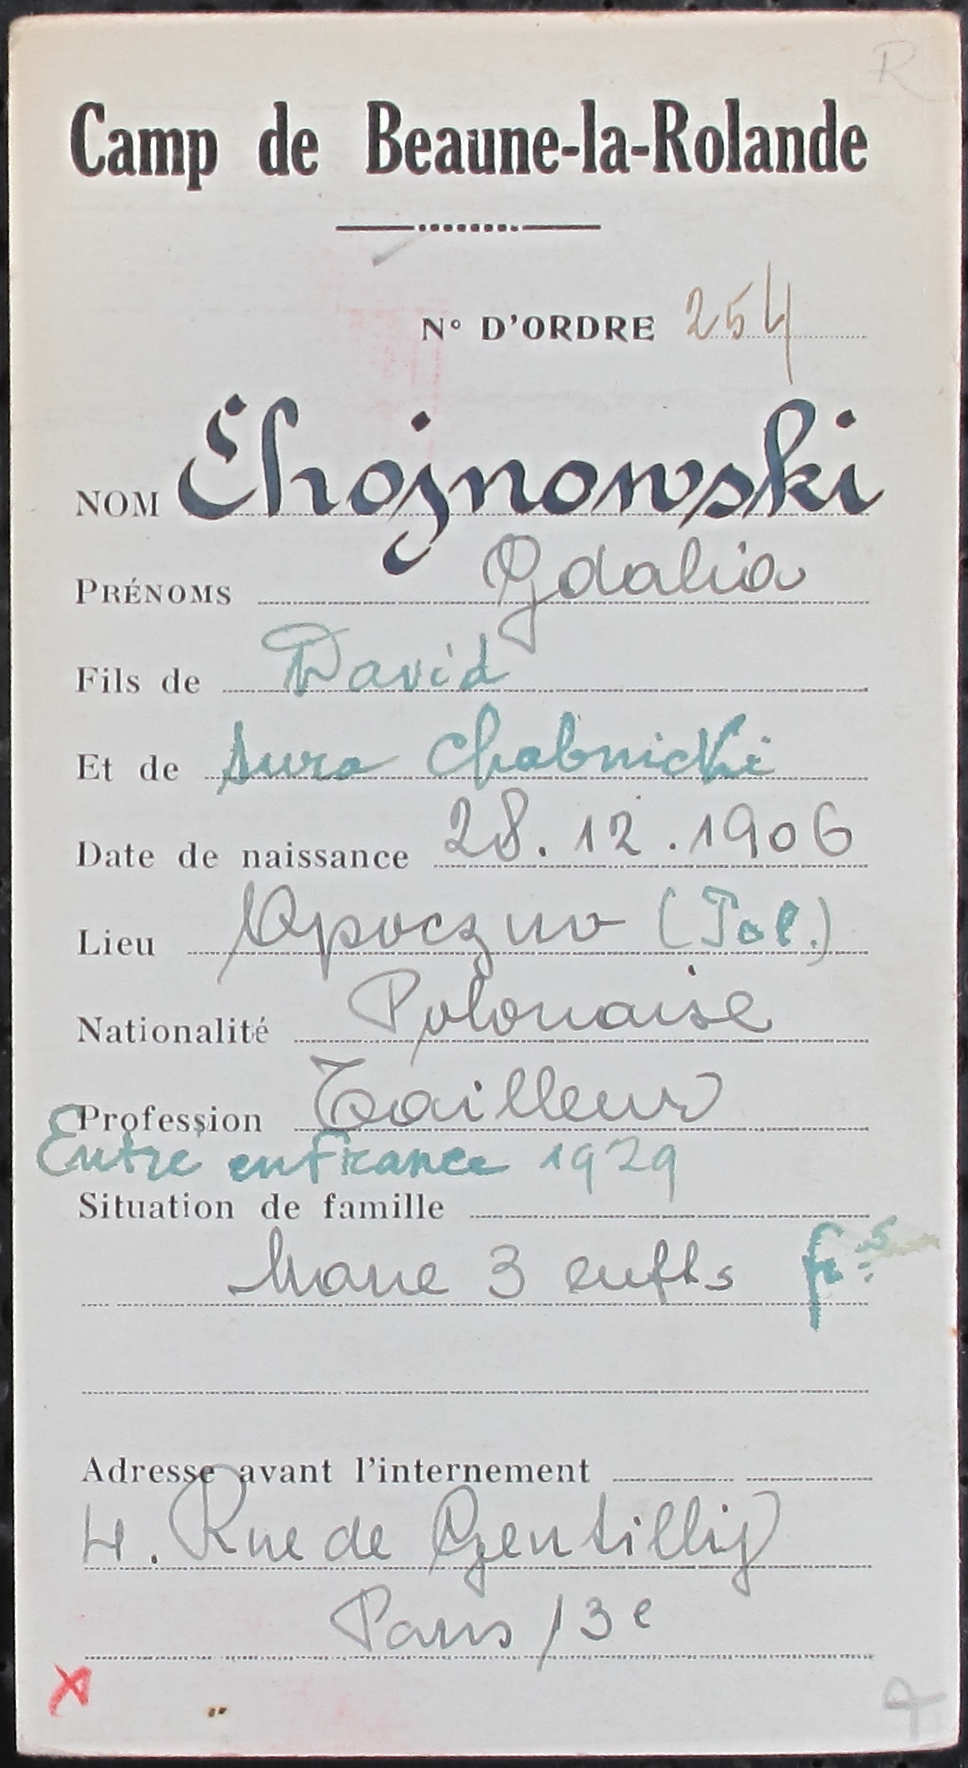 R
Camp de Beaune-la-Rolande
N° D'ORDRE 254
NOM Chojnowski
PRÉNOMS Gdalia
Fils de David
Et de Sura Chabnicki
Date de naissance 28.12.1906
Lieu Opoczno (Pol.)
Nationalité Polonaise
Profession Tailleur
Entre en france 1929
Situation de famille
Marie 3 enfts frs
Adresse avant l'internement
4. Rue de Gentilly
Paris 13e